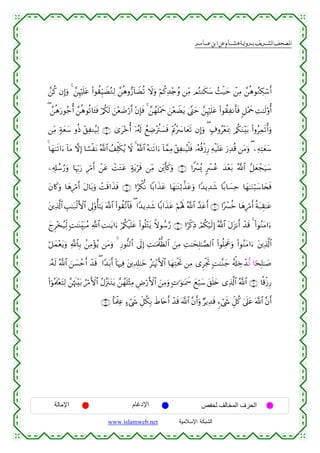 المصحف الشريف برواية هشام عن ابن عامر
أَسْكِنُوهُنَّ مِنْ حَيْثُ سَكَنتُم مِّن وُجْدِكُمْ وَلَا تُضَآرُّوهُنَّ لِتُضَيِّقُوا۟ عَلَيْهِنَّ ۚ وَإِن كُنَّ
أُو۟لَـٰتِ حَمْلٍ فَأَنفِقُوا۟ عَلَيْهِنَّ حَتَّىٰ يَضَعْنَ حَمْلَهُنَّ ۚ فَإِنْ أَرْضَعْنَ لَكُمْ فَـَٔاتُوهُنَّ أُجُورَهُنَّ ۖ
وَأْتَمِرُوا۟ بَيْنَكُم بِمَعْرُوفٍ ۖ وَإِن تَعَاسَرْتُمْ فَسَتُرْضِعُ لَهُۥٓ أُخْرَىٰ ۝ لِيُنفِقْ ذُو سَعَةٍ مِّن
سَعَتِهِۦ ۖ وَمَن قُدِرَ عَلَيْهِ رِزْقُهُۥ فَلْيُنفِقْ مِمَّآ ءَاتَىٰهُ ٱللَّهُ ۚ لَا يُكَلِّفُ ٱللَّهُ نَفْسًا إِلَّا مَآ ءَاتَىٰهَا ۚ
سَيَجْعَلُ ٱللَّهُ بَعْدَ عُسْرٍ يُسْرًا ۝ وَكَأَيِّن مِّن قَرْيَةٍ عَتَتْ عَنْ أَمْرِ رَبِّهَا وَرُسُلِهِۦ
فَحَاسَبْنَـٰهَا حِسَابًا شَدِيدًا وَعَذَّبْنَـٰهَا عَذَابًا نُّكْرًا ۝ فَذَاقَتْ وَبَالَ أَمْرِهَا وَكَانَ
عَـٰقِبَةُ أَمْرِهَا خُسْرًا ۝ أَعَدَّ ٱللَّهُ لَهُمْ عَذَابًا شَدِيدًا ۖ فَٱتَّقُوا۟ ٱللَّهَ يَـٰٓأُو۟لِى ٱلْأَلْبَـٰبِ ٱلَّذِينَ
ءَامَنُوا۟ ۚ قَدْ أَنزَلَ ٱللَّهُ إِلَيْكُمْ ذِكْرًا ۝ رَّسُولًا يَتْلُوا۟ عَلَيْكُمْ ءَايَـٰتِ ٱللَّهِ مُبَيِّنَـٰتٍ لِّيُخْرِجَ
ٱلَّذِينَ ءَامَنُوا۟ وَعَمِلُوا۟ ٱلصَّـٰلِحَـٰتِ مِنَ ٱلظُّلُمَـٰتِ إِلَى ٱلنُّورِ ۚ وَمَن يُؤْمِنۢ بِٱللَّهِ وَيَعْمَلْ
صَـٰلِحًا نُدْخِلْهُ جَنَّـٰتٍ تَجْرِى مِن تَحْتِهَا ٱلْأَنْهَـٰرُ خَـٰلِدِينَ فِيهَآ أَبَدًا ۖ قَدْ أَحْسَنَ ٱللَّهُ لَهُۥ
رِزْقًا ۝ ٱللَّهُ ٱلَّذِى خَلَقَ سَبْعَ سَمَـٰوَٰتٍ وَمِنَ ٱلْأَرْضِ مِثْلَهُنَّ يَتَنَزَّلُ ٱلْأَمْرُ بَيْنَهُنَّ لِتَعْلَمُوٓا۟
أَنَّ ٱللَّهَ عَلَىٰ كُلِّ شَىْءٍ قَدِيرٌ وَأَنَّ ٱللَّهَ قَدْ أَحَاطَ بِكُلِّ شَىْءٍ عِلْمًۢا ۝
الحرف المخالف لحفص الإدغام الإمالة
الشبكة الإسلامية www.islamweb.net